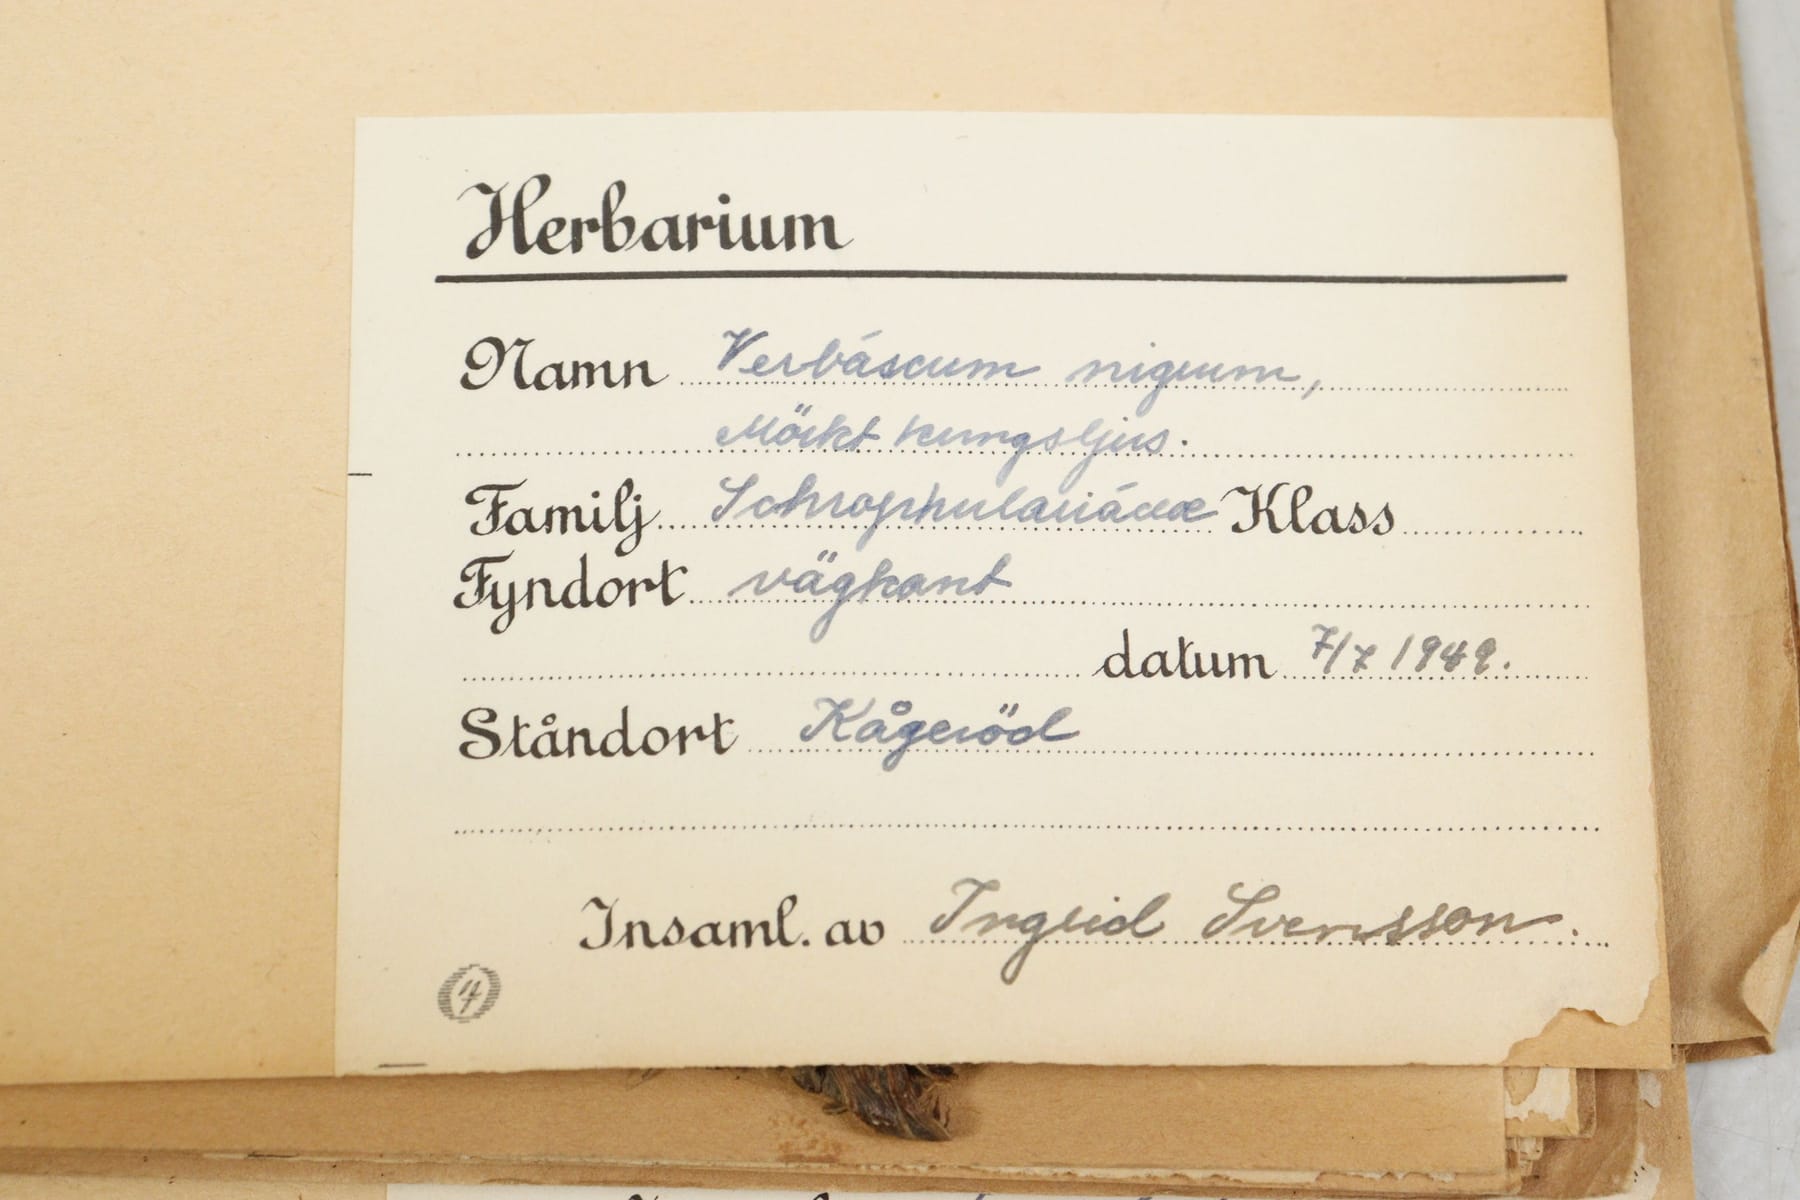 Herbarium
Namn Verbáscum nigrum,
Mörkt kungsljus.
Familj Schrophulariáceæ Klass
Fyndort vägkant
datum 7/7 1949.
Ståndort Kågeröd
Insaml. av Ingrid Svensson.